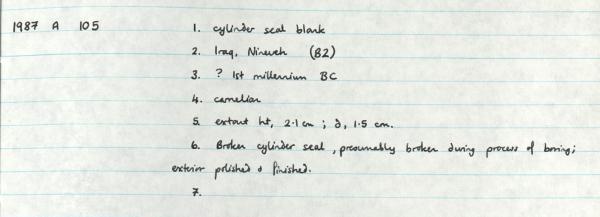 1987 A 105 1. cylinder seal blank
2. Iraq, Nineveh (B2)
3. ? 1st millennium BC
4. carnelian
5. extant ht, 2.1 cm ; d, 1.5 cm.
6. Broken cylinder seal, presumably broken during process of boring;
exterior polished & finished.
7.